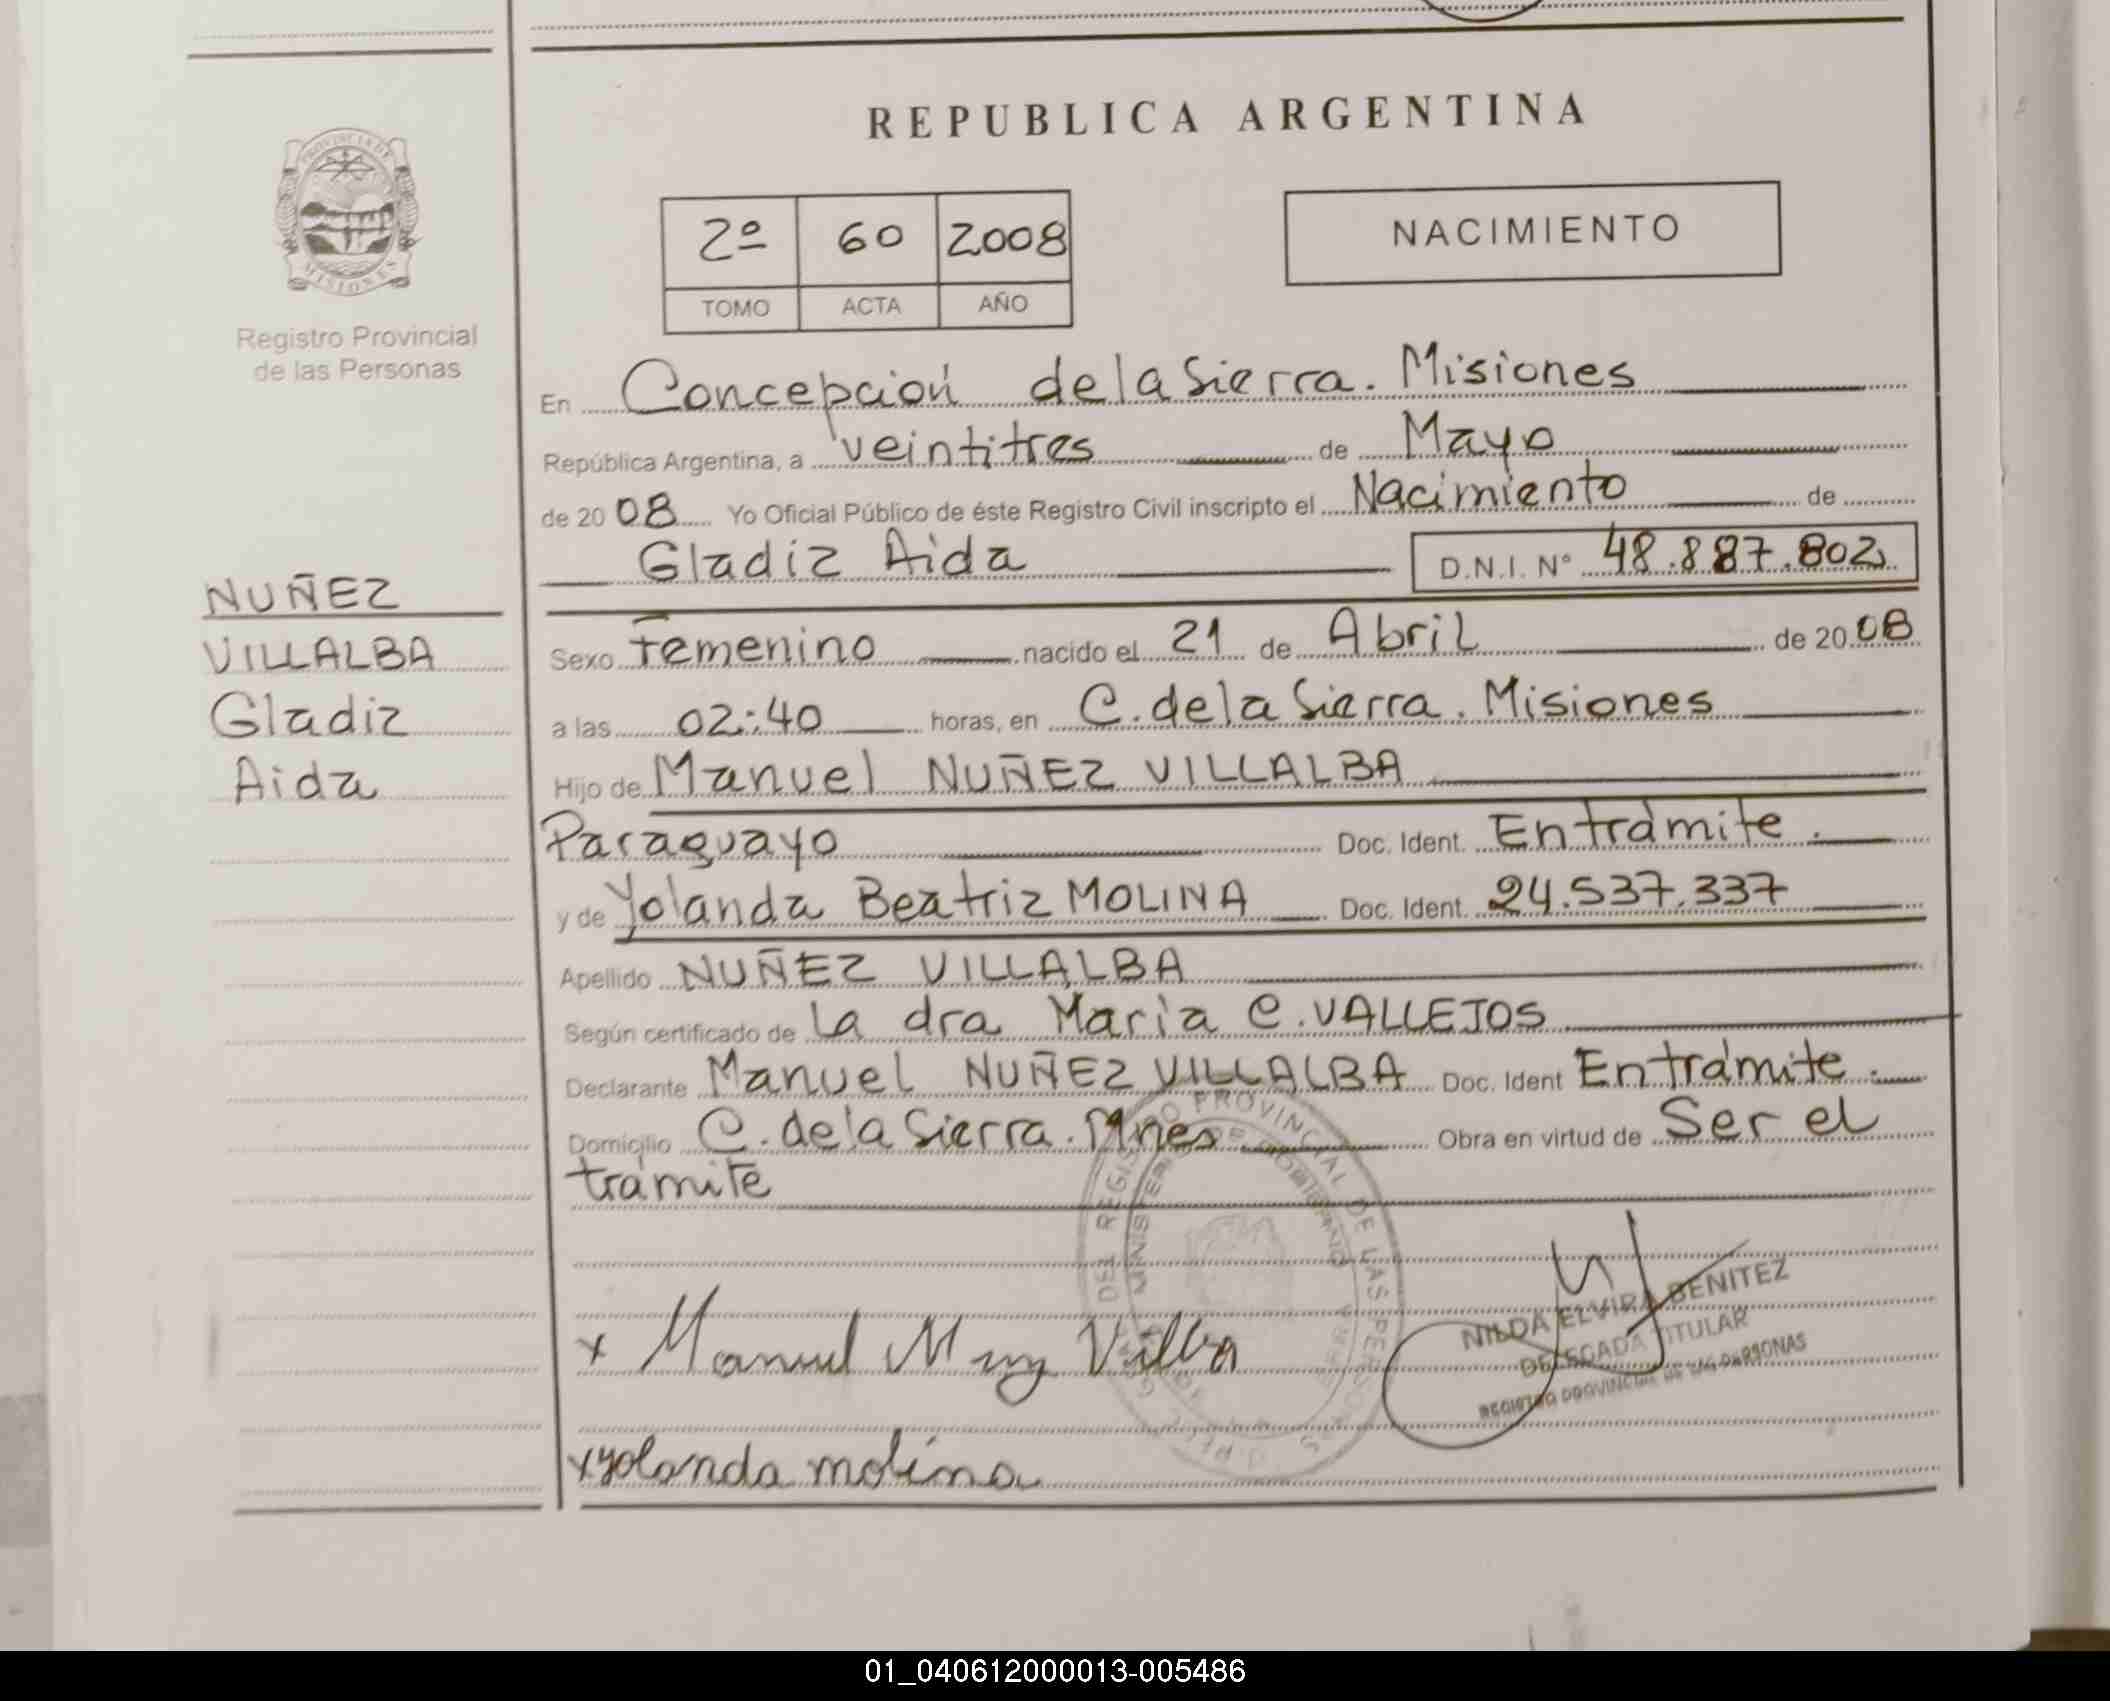 REPUBLICA ARGENTINA
PROVINCIA DE MISIONES
Registro Provincial
de las Personas
2º 60 2008
TOMO ACTA AÑO
NACIMIENTO
NUÑEZ
VILLALBA
Gladiz
Aida
En Concepción de la Sierra. Misiones
República Argentina, a veintitres de Mayo
de 2008 Yo Oficial Público de éste Registro Civil inscripto el Nacimiento de
Gladiz Aida D.N.I. Nº 48.887.802
Sexo Femenino nacido el 21 de Abril de 2008
a las 02:40 horas, en C. de la Sierra. Misiones
Hijo de Manuel NUÑEZ VILLALBA
Paraguayo Doc. Ident. En trámite.
y de Yolanda Beatriz MOLINA Doc. Ident. 24.537.337
Apellido NUÑEZ VILLALBA
Según certificado de la dra María C. VALLEJOS
Declarante Manuel NUÑEZ VILLALBA Doc. Ident En trámite.
Domicilio C. de la Sierra. Mnes Obra en virtud de Ser el
trámite
DEL REGISTRO PROVINCIAL DE LAS PERSONAS
MINISTERIO DE GOBIERNO
NILDA ELVIRA BENITEZ
DELEGADA TITULAR
REGISTRO PROVINCIAL DE LAS PERSONAS
x Manuel
x yolanda molina
01_040612000013-005486